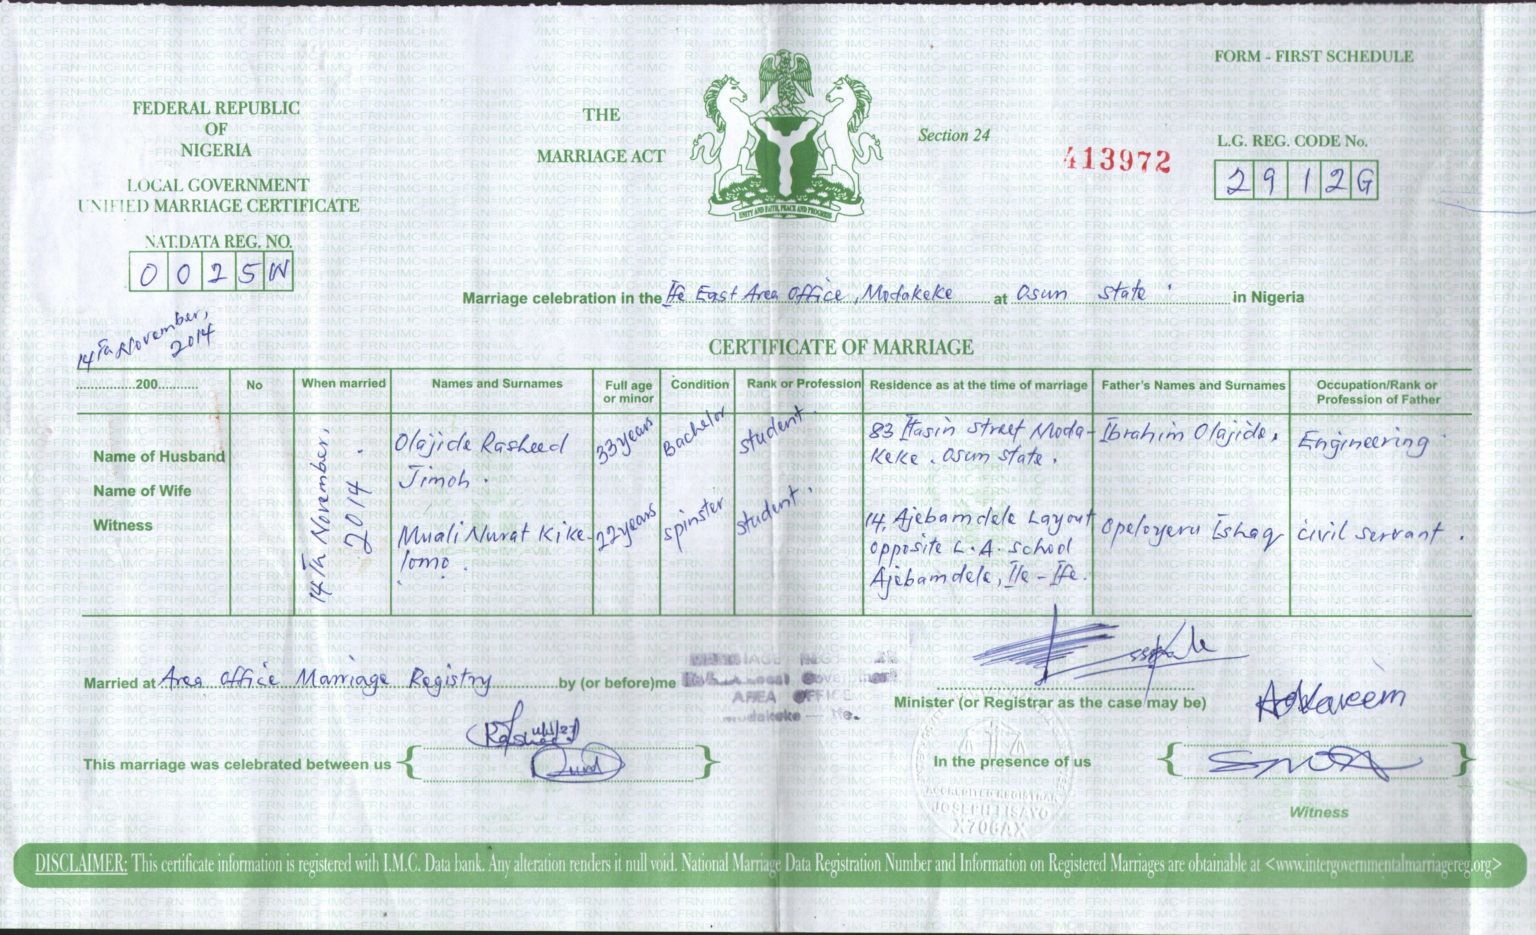 FORM - FIRST SCHEDULE
FEDERAL REPUBLIC
OF
NIGERIA
LOCAL GOVERNMENT
UNIFIED MARRIAGE CERTIFICATE
NAT.DATA REG. NO.
0 0 2 5 W
THE
MARRIAGE ACT
UNITY AND FAITH, PEACE AND PROGRESS
Section 24
413972
L.G. REG. CODE No.
2 9 1 2 G
Marriage celebration in the Ife East Area Office, Modakeke at Osun State. in Nigeria
14th November,
2014
CERTIFICATE OF MARRIAGE
200 No When married Names and Surnames Full age or minor Condition Rank or Profession Residence as at the time of marriage Father's Names and Surnames Occupation/Rank or Profession of Father
Name of Husband
Name of Wife
Witness
14th November,
2014.
Olajide Rasheed
Jimoh.
33years
Bachelor
student.
83 Itasin street Moda-
keke. Osun state.
Ibrahim Olajide.
Engineering
Muali Nurat Kike-
lomo.
22years
spinster
student.
14, Ajebamdele Layout
opposite L.A. school
Ajebamdele, Ile-Ife.
Opeloyeru Ishaq
civil servant.
Married at Area Office Marriage Registry by (or before)me
AREA OFFICE
Modakeke - Ife.
Minister (or Registrar as the case may be)
This marriage was celebrated between us
In the presence of us
Witness
ACCREDITED REGISTRAR
X706AX
DISCLAIMER: This certificate information is registered with I.M.C. Data bank. Any alteration renders it null void. National Marriage Data Registration Number and Information on Registered Marriages are obtainable at <www.intergovernmentalmarriagereg.org>